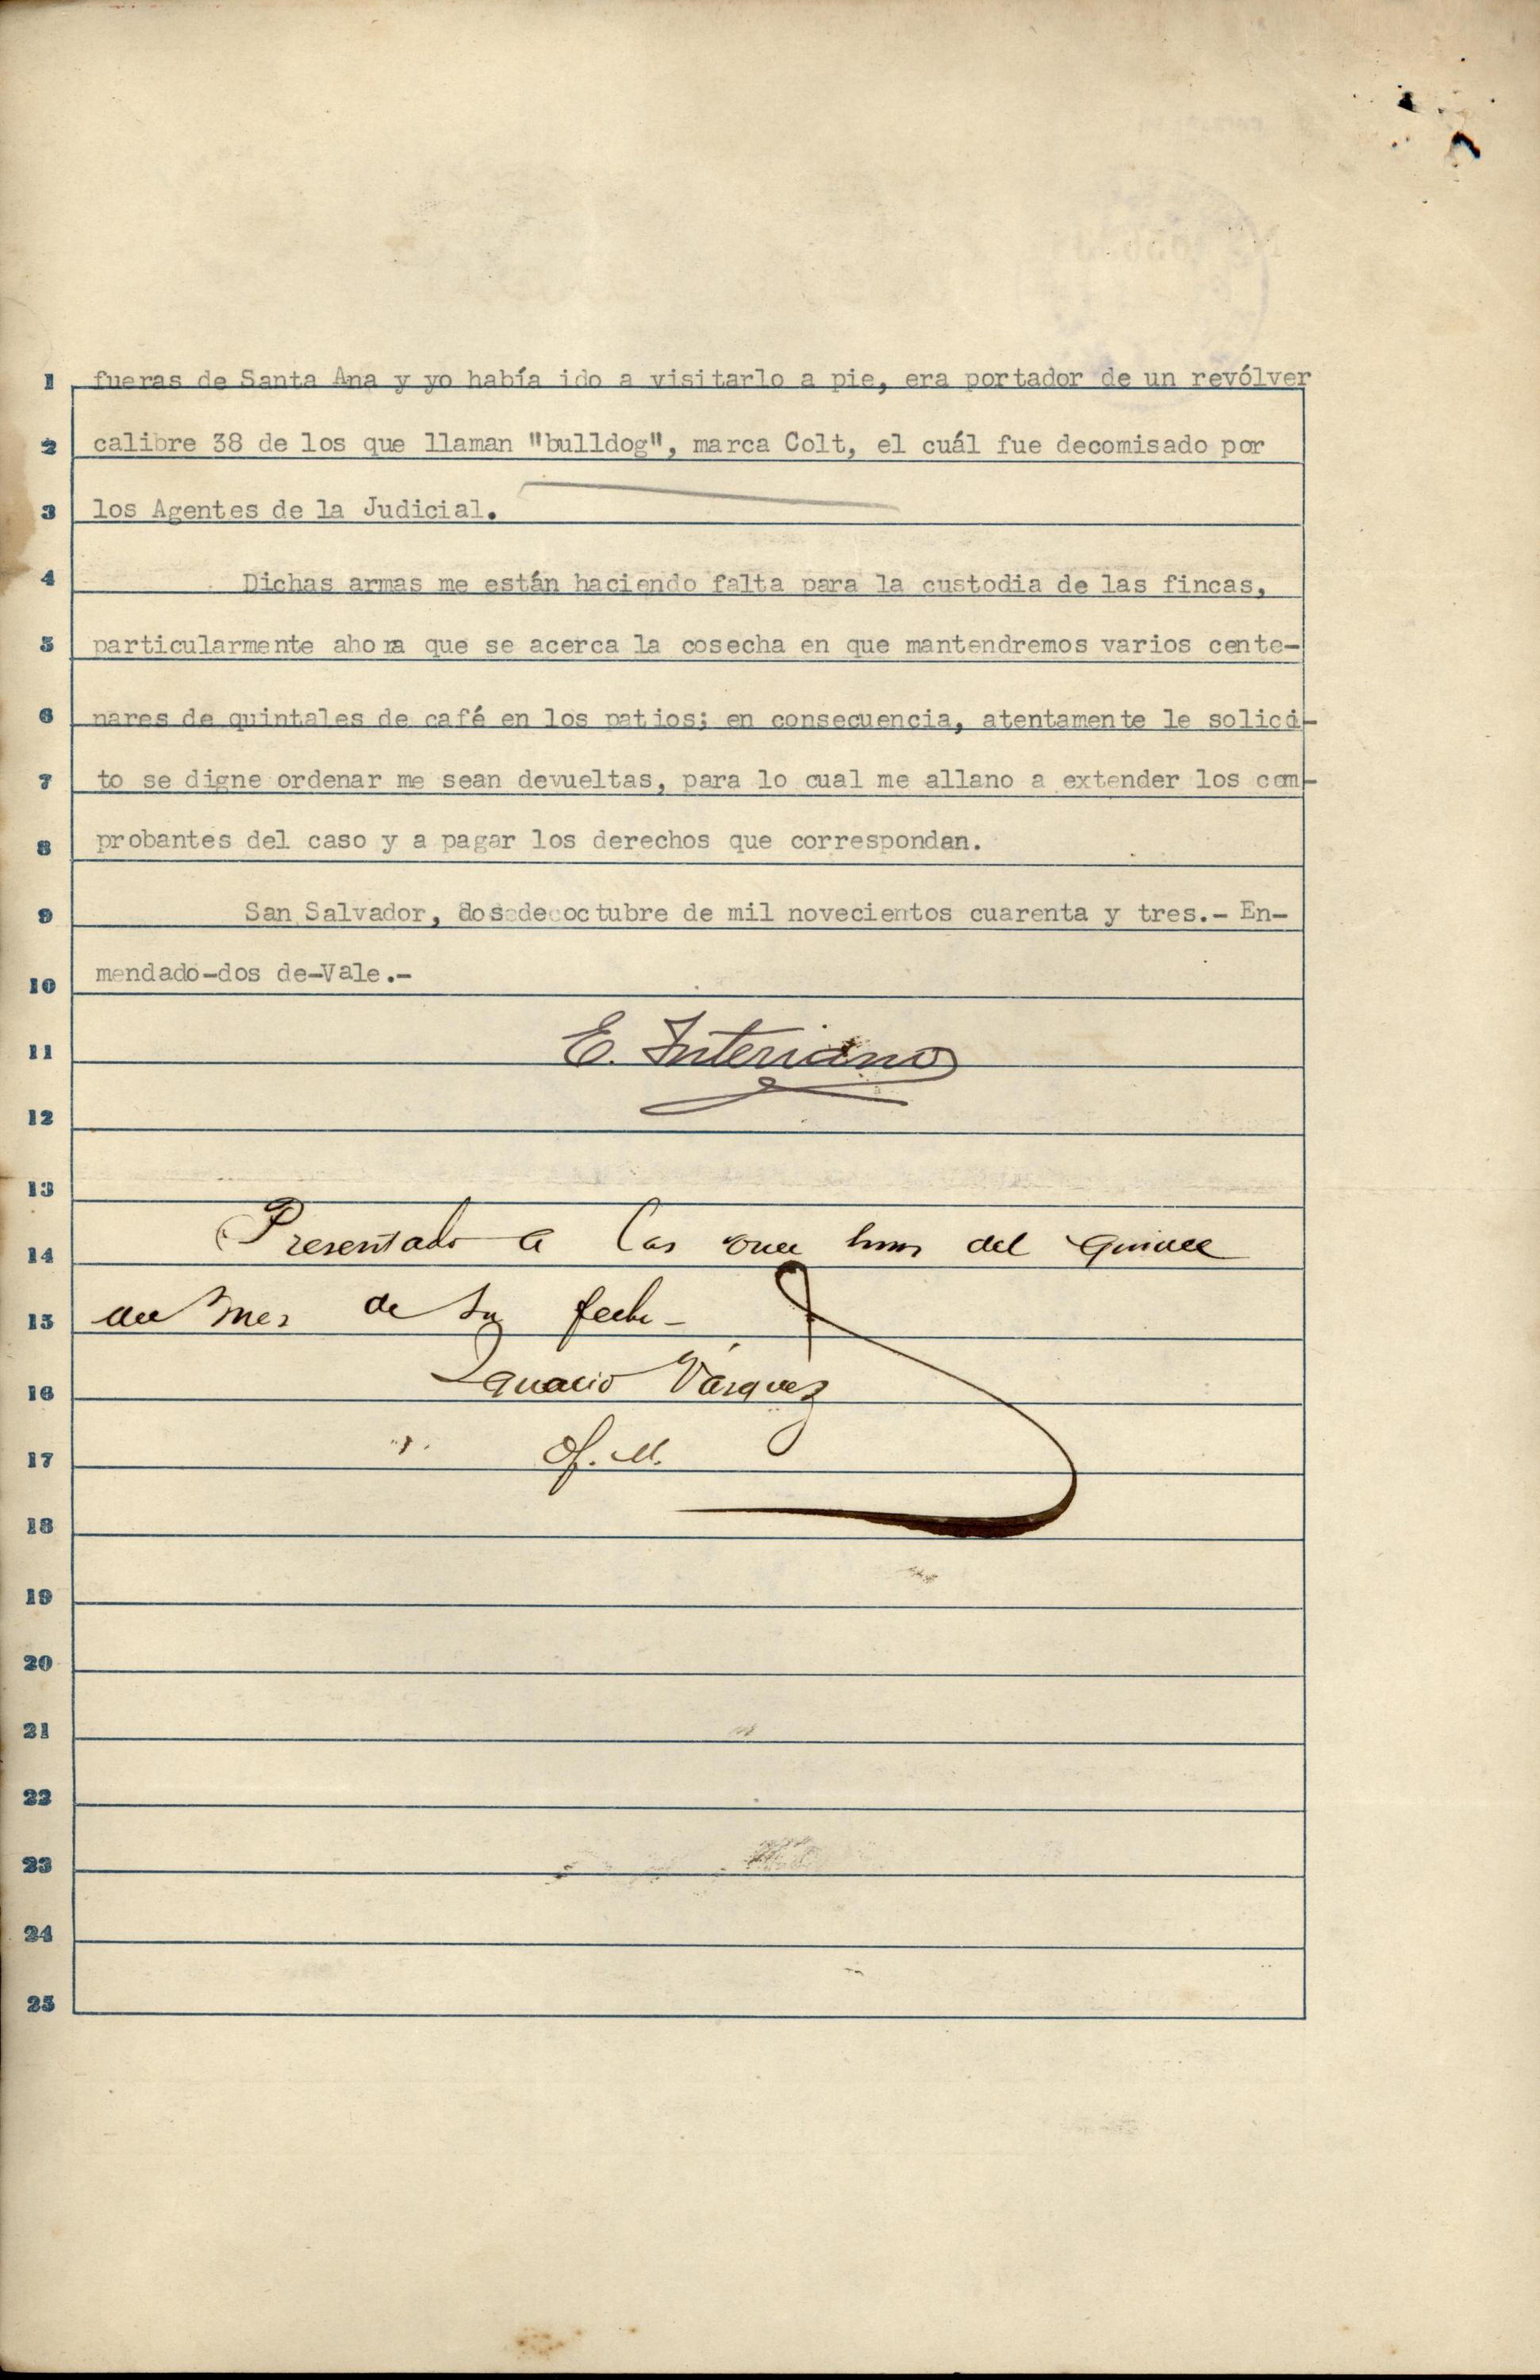 1 fueras de Santa Ana y yo había ido a visitarlo a pie, era portador de un revólver
2 calibre 38 de los que llaman "bulldog", marca Colt, el cuál fue decomisado por
3 los Agentes de la Judicial.
4 Dichas armas me están haciendo falta para la custodia de las fincas,
5 particularmente ahora que se acerca la cosecha en que mantendremos varios cente-
6 nares de quintales de café en los patios; en consecuencia, atentamente le solici-
7 to se digne ordenar me sean devueltas, para lo cual me allano a extender los com-
8 probantes del caso y a pagar los derechos que correspondan.
9 San Salvador, dos de octubre de mil novecientos cuarenta y tres.- En-
10 mendado-dos de-Vale.-
11 E. Interiano
12
13
14 Presentado a las once horas del quince
15 del mes de su fecha-
16 Ignacio Vásquez
17 Of. M.
18
19
20
21
22
23
24
25